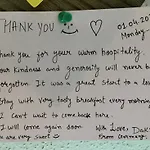 THANK YOU
01.04.20
Monday
Thank you for your warm hospitality.
Your kindness and generosity will never be
forgotten. It was a great start to a
stay with very tasty breakfast every morning
I can't wait to come back here.
I will come again soon
with Love,
are very sweet
from Germany